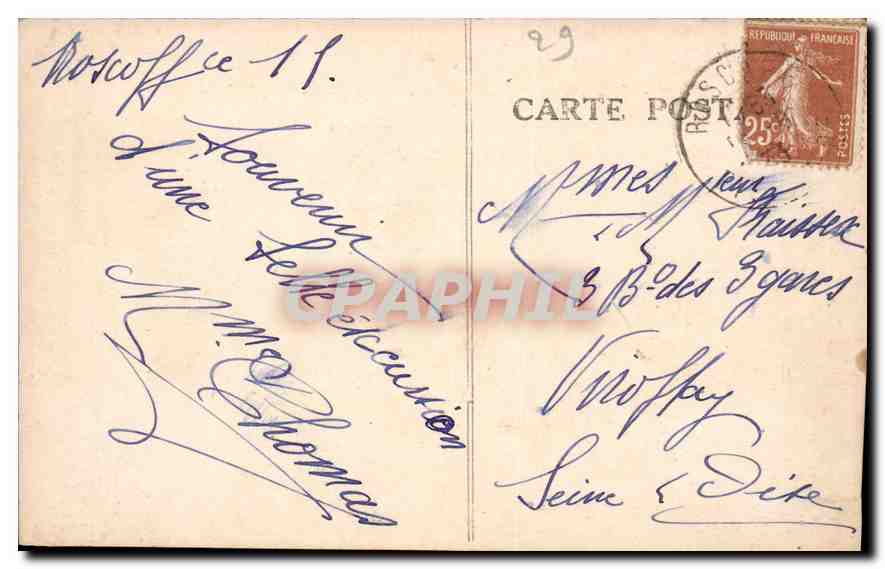 29
Roscoff ce 11.
Souvenir
d'une belle éxcurtion
Mme Thomas
CARTE POSTALE
REPUBLIQUE FRANÇAISE
25c
POSTES
ROSCO
Mmes
M
3 Bd des 3 gares
Viroflay
Seine & Oise
CPAPHIL